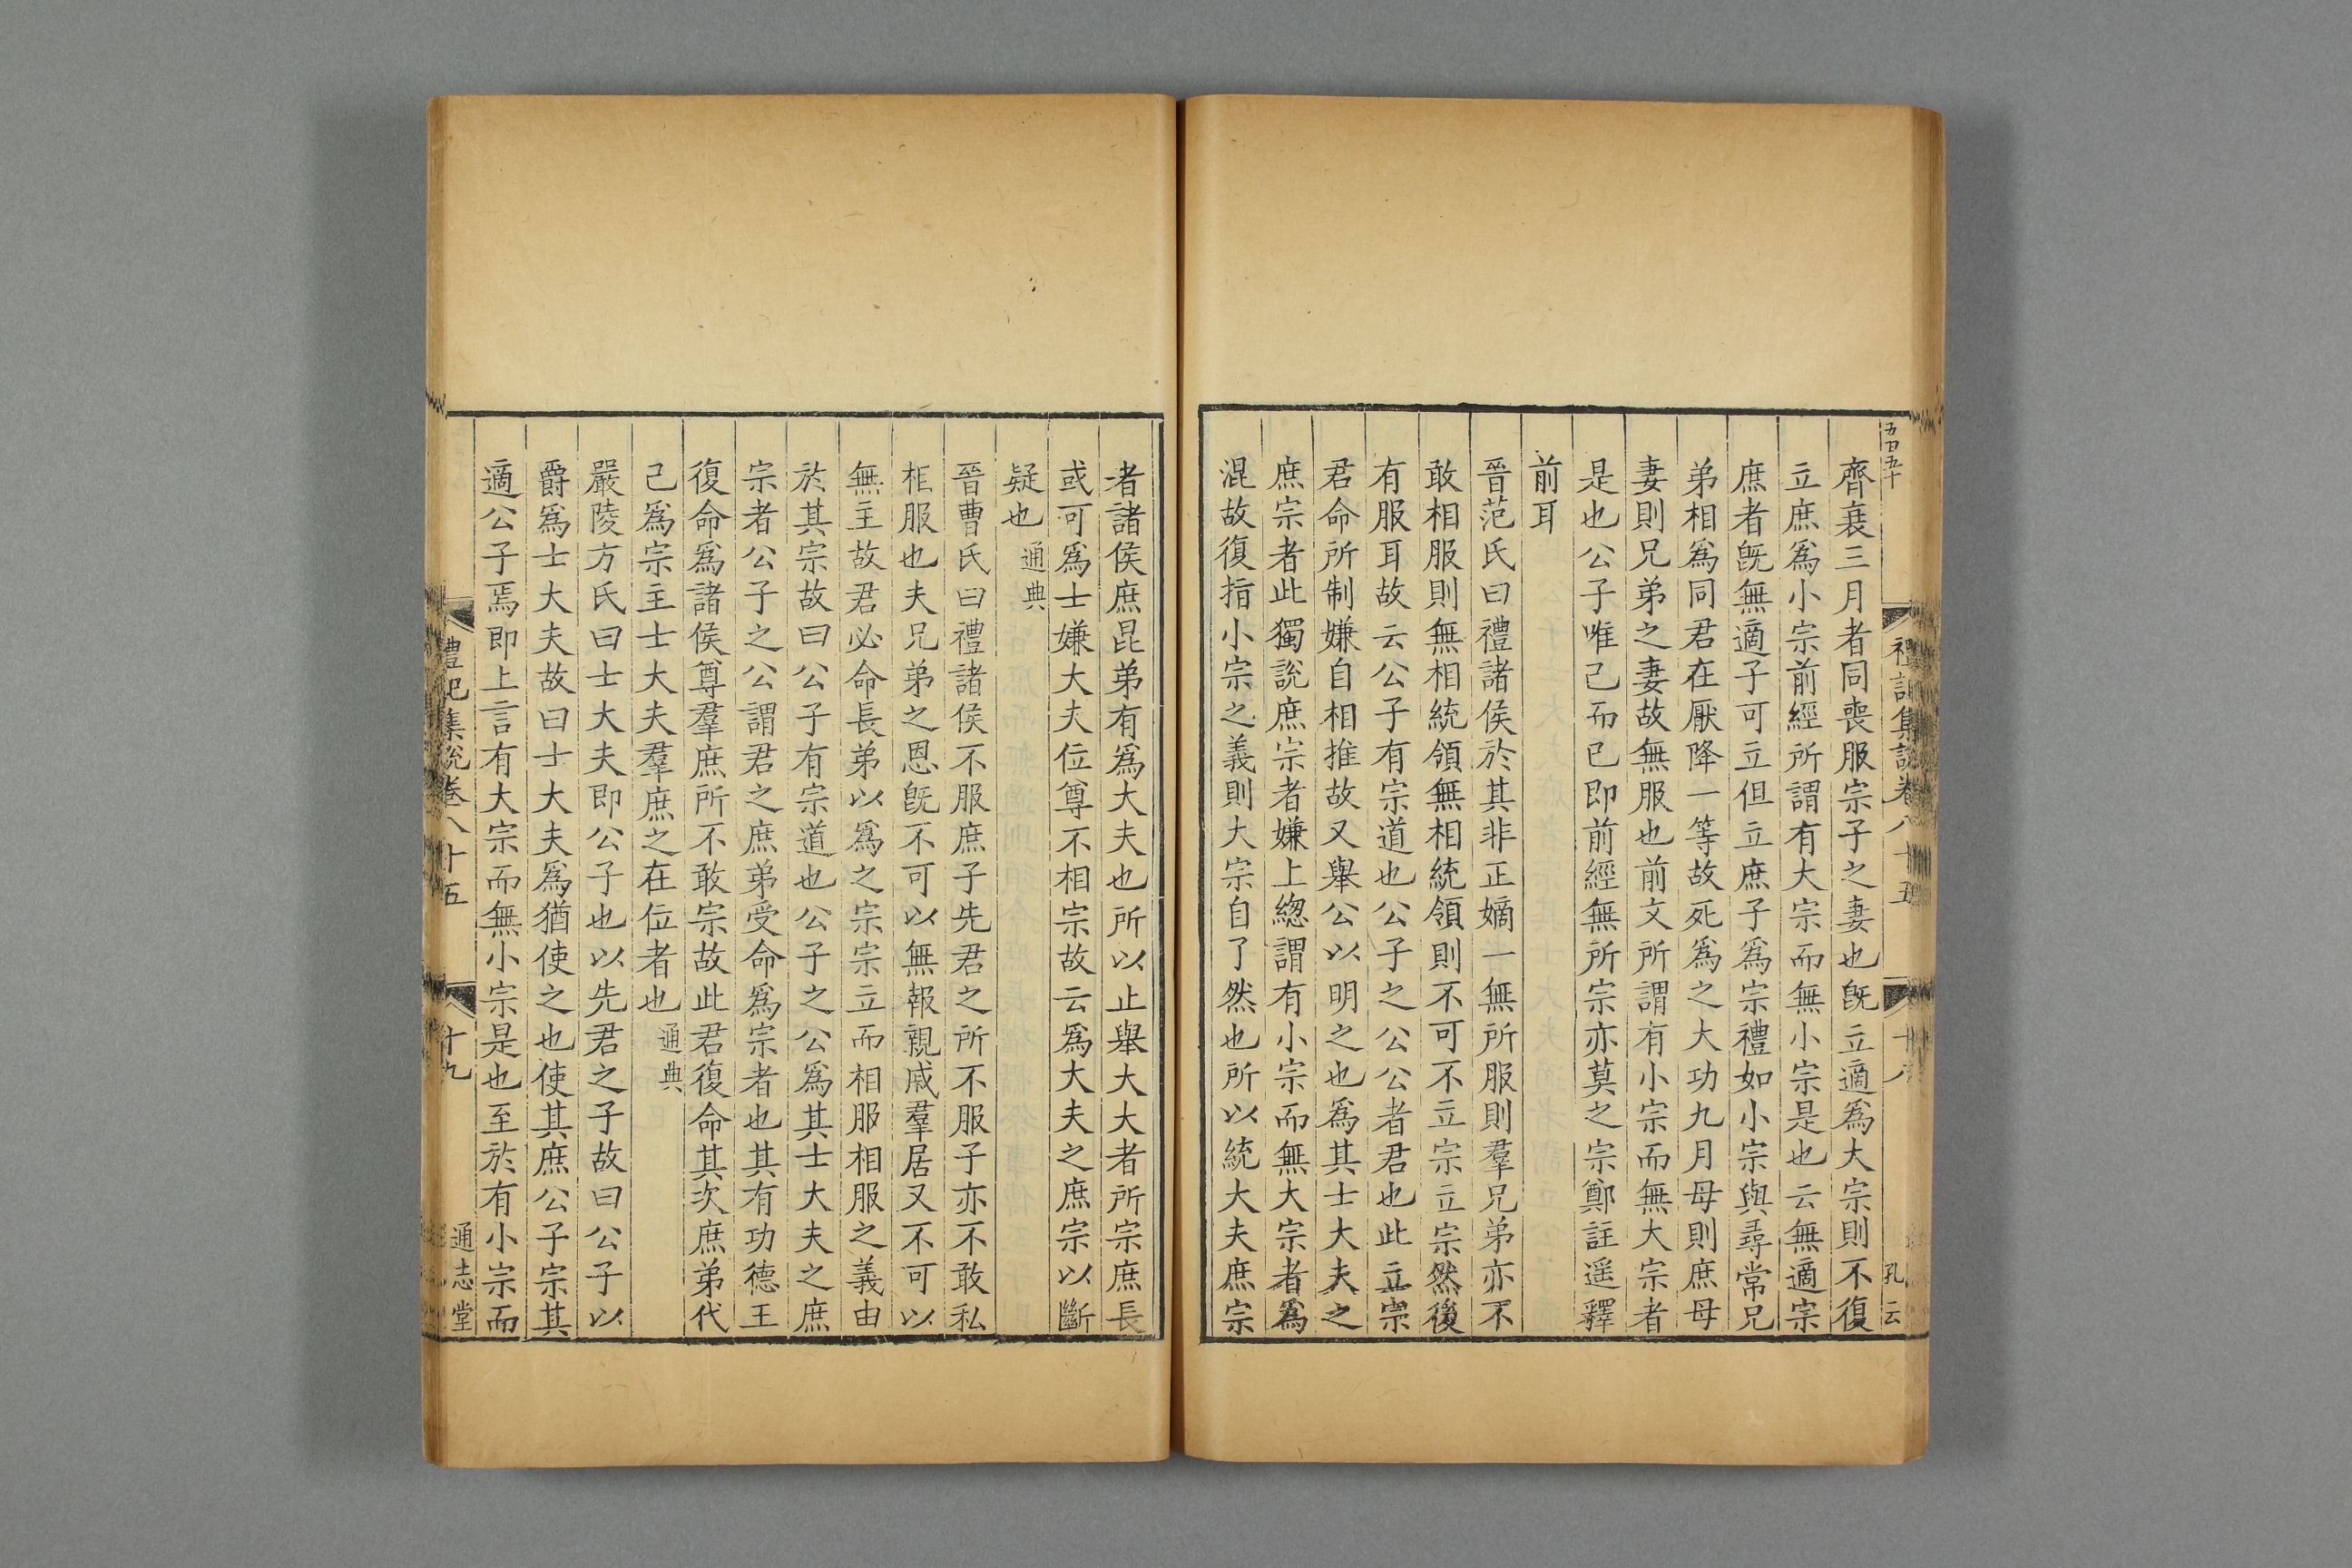 五百五十
禮記集說卷八十五
十八
孔云
齊衰三月者同喪服宗子之妻也旣立適爲大宗則不復
立庶爲小宗前經所謂有大宗而無小宗是也云無適宗
庶者旣無適子可立但立庶子爲宗禮如小宗與尋常兄
弟相爲同君在厭降一等故死爲之大功九月母則庶母
妻則兄弟之妻故無服也前文所謂有小宗而無大宗者
是也公子唯己而已即前經無所宗亦莫之宗鄭註遥釋
前耳
晉范氏曰禮諸侯於其非正嫡一無所服則羣兄弟亦不
敢相服則無相統領無相統領則不可不立宗立宗然後
有服耳故云公子有宗道也公子之公公者君也此立宗
君命所制嫌自相推故又舉公以明之也爲其士大夫之
庶宗者此獨說庶宗者嫌上緫謂有小宗而無大宗者爲
混故復指小宗之義則大宗自了然也所以統大夫庶宗
者諸侯庶昆弟有爲大夫也所以止舉大大者所宗庶長
或可爲士嫌大夫位尊不相宗故云爲大夫之庶宗以斷
疑也通典
晉曹氏曰禮諸侯不服庶子先君之所不服子亦不敢私
相服也夫兄弟之恩旣不可以無報親戚羣居又不可以
無主故君必命長弟以爲之宗宗立而相服相服之義由
於其宗故曰公子有宗道也公子之公爲其士大夫之庶
宗者公子之公謂君之庶弟受命爲宗者也其有功德王
復命爲諸侯尊羣庶所不敢宗故此君復命其次庶弟代
己爲宗主士大夫羣庶之在位者也通典
嚴陵方氏曰士大夫即公子也以先君之子故曰公子以
爵爲士大夫故曰士大夫爲猶使之也使其庶公子宗其
適公子焉即上言有大宗而無小宗是也至於有小宗而
禮記集說卷八十五
十九
通志堂